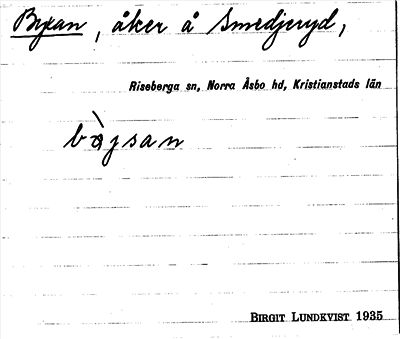 Byxan, åker å Smedjeryd,
Riseberga sn, Norra Åsbo hd, Kristianstads län
bỳgsan
BIRGIT LUNDKVIST 1935